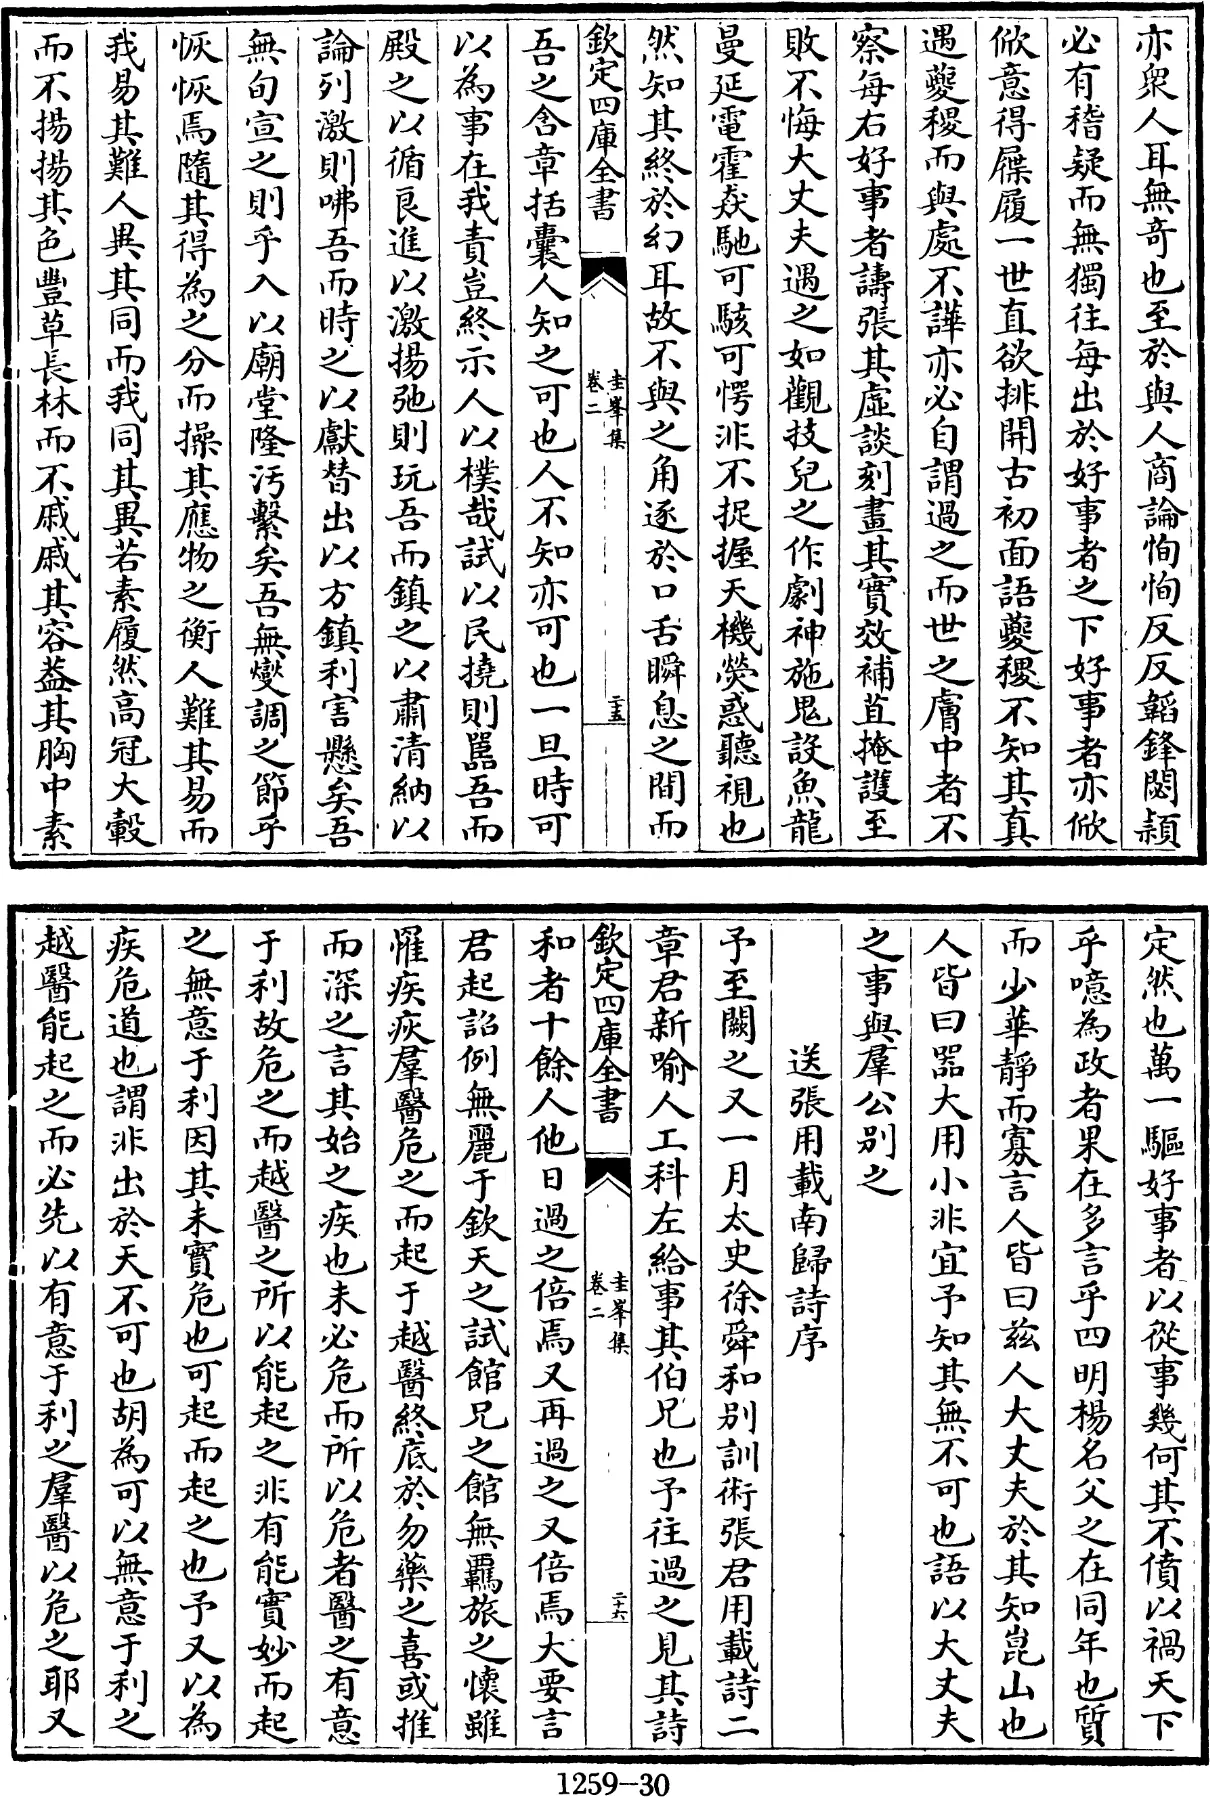 亦衆人耳無奇也至於與人商論恂恂反反韜鋒閟頴
必有稽疑而無獨往每出於好事者之下好事者亦俽
俽意得屧履一世直欲排開古初面語夔稷不知其真
遇夔稷而與處不譁亦必自謂過之而世之膚中者不
察每右好事者譸張其虛談刻畫其實效補苴掩護至
敗不悔大丈夫遇之如觀技兒之作劇神施鬼設魚龍
曼延電霍猋馳可駭可愕非不捉握天機熒惑聽視也
然知其終於幻耳故不與之角逐於口舌瞬息之間而
欽定四庫全書
圭峯集
卷二
二十五
吾之含章括囊人知之可也人不知亦可也一旦時可
以為事在我責豈終示人以樸哉試以民撓則嚚吾而
殿之以循良進以激揚弛則玩吾而鎮之以肅清納以
論列激則咈吾而時之以獻替出以方鎮利害懸矣吾
無旬宣之則乎入以廟堂隆汚繫矣吾無燮調之節乎
恢恢焉隨其得為之分而操其應物之衡人難其易而
我易其難人異其同而我同其異若素履然高冠大轂
而不揚揚其色豐草長林而不戚戚其容葢其胸中素
定然也萬一驅好事者以從事幾何其不僨以禍天下
乎噫為政者果在多言乎四明楊名父之在同年也質
而少華靜而寡言人皆曰茲人大丈夫於其知崑山也
人皆曰器大用小非宜予知其無不可也語以大丈夫
之事與羣公別之
送張用載南歸詩序
予至闕之又一月太史徐舜和別訓術張君用載詩二
章君新喻人工科左給事其伯兄也予往過之見其詩
欽定四庫全書
圭峯集
卷二
二十六
和者十餘人他日過之倍焉又再過之又倍焉大要言
君起詔例無麗于欽天之試館兄之館無羈旅之懷雖
罹疾疢羣醫危之而起于越醫終底於勿藥之喜或推
而深之言其始之疾也未必危而所以危者醫之有意
于利故危之而越醫之所以能起之非有能實妙而起
之無意于利因其未實危也可起而起之也予又以為
疾危道也謂非出於天不可也胡為可以無意于利之
越醫能起之而必先以有意于利之羣醫以危之耶又
1259—30